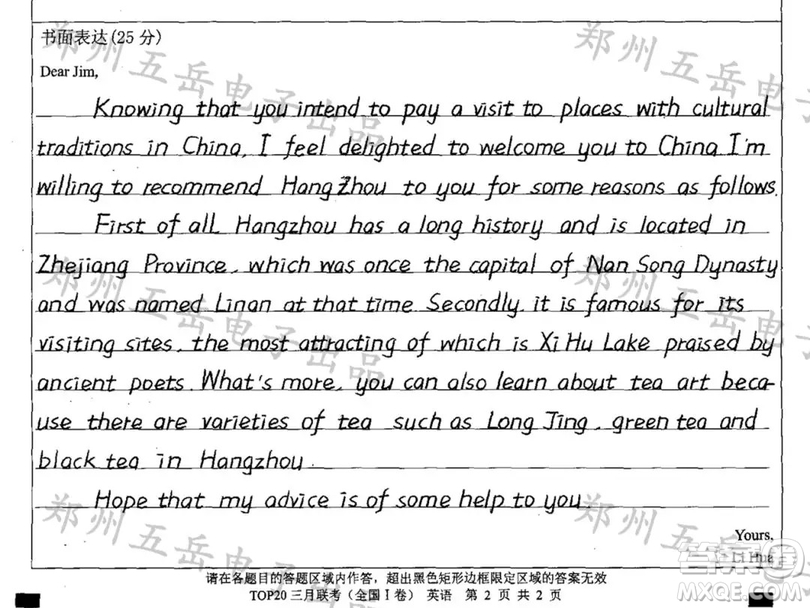 书面表达(25分)
Dear Jim,
Knowing that you intend to pay a visit to places with cultural
traditions in China, I feel delighted to welcome you to China. I'm
willing to recommend HangZhou to you for some reasons as follows.
First of all, Hangzhou has a long history and is located in
Zhejiang Province, which was once the capital of Nan Song Dynasty
and was named Linan at that time. Secondly, it is famous for its
visiting sites, the most attracting of which is Xi Hu Lake praised by
ancient poets. What's more, you can also learn about tea art beca-
use there are varieties of tea such as Long Jing, green tea and
black tea in Hangzhou.
Hope that my advice is of some help to you.
Yours,
Li Hua
请在各题目的答题区域内作答，超出黑色矩形边框限定区域的答案无效
TOP20 三月联考（全国Ⅰ卷） 英语 第 2 页 共 2 页
郑州五岳电子出品
郑州五岳电子出品
郑州五岳电子出品
答案圈
MXQE.COM